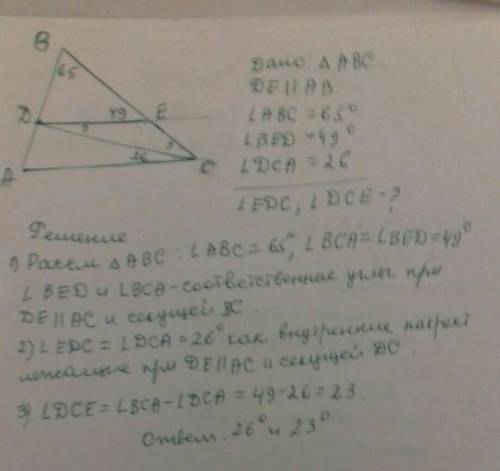 B
65
D
49
E
?
?
26
A
C
Дано: ΔABC
DE∥AB
∠ABC = 65°
∠BED = 49°
∠DCA = 26
∠EDC, ∠DCE - ?
Решение
1) Рассм ΔABC: ∠ABC = 65°, ∠BCA = ∠BED = 49°
∠BED и ∠BCA - соответственные углы при
DE∥AC и секущей BC.
2) ∠EDC = ∠DCA = 26° как внутренние накрест
лежащие при DE∥AC и секущей DC.
3) ∠DCE = ∠BCA - ∠DCA = 49 - 26 = 23.
Ответ: 26° и 23°